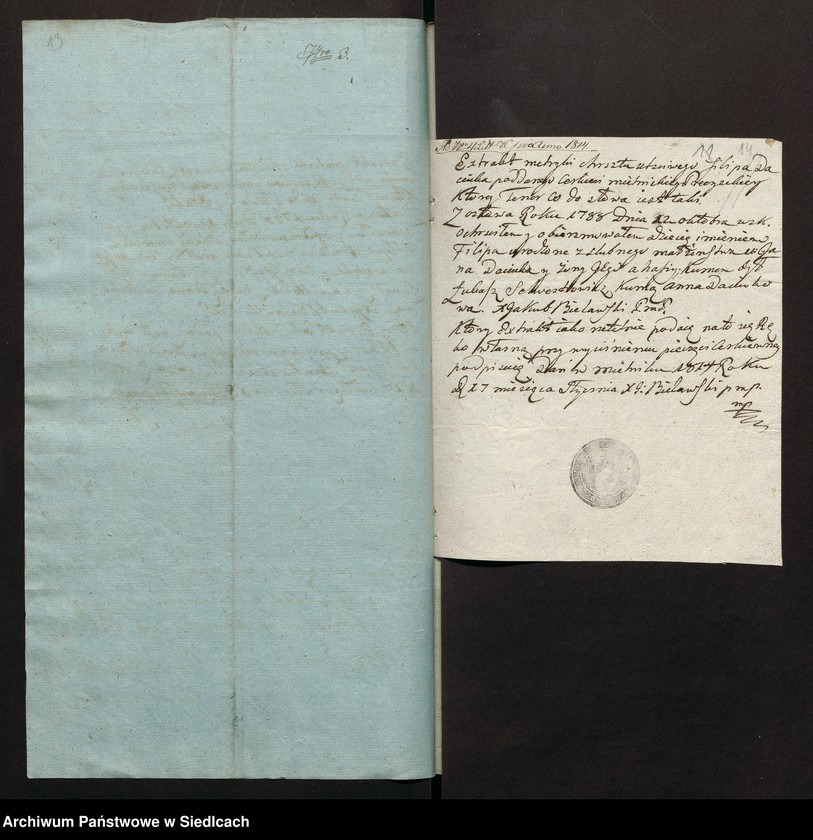 13
Nro 3.
11 14
1814
Extrakt metryki chrztu uczciwego Filipa Da
ciuka poddanego Cerkwi mielnickiey
Ktorey Tenor co do słowa iest taki
Roku 1788 Dnia 12 oktobra v. s. k.
ochrzciłem y obierzmowałem dziecię imieniem
Filipa urodzone z slubnego małżenstwa
na Daciuka y żony Jego ahafiy. Kumem był
Łukasz Kumą anna Daciuko
wa. X Jakub Bielawski P. M.
Ktory Extrakt iako rzetelnie podaię na to się Rę
ką własną przy wycisnieniu pieczęci Cerkiewney
podpisuię Dan w mielniku 1814 Roku
D 17 miesiąca stycznia X J: Bielawski pmp.
mp
Archiwum Państwowe w Siedlcach